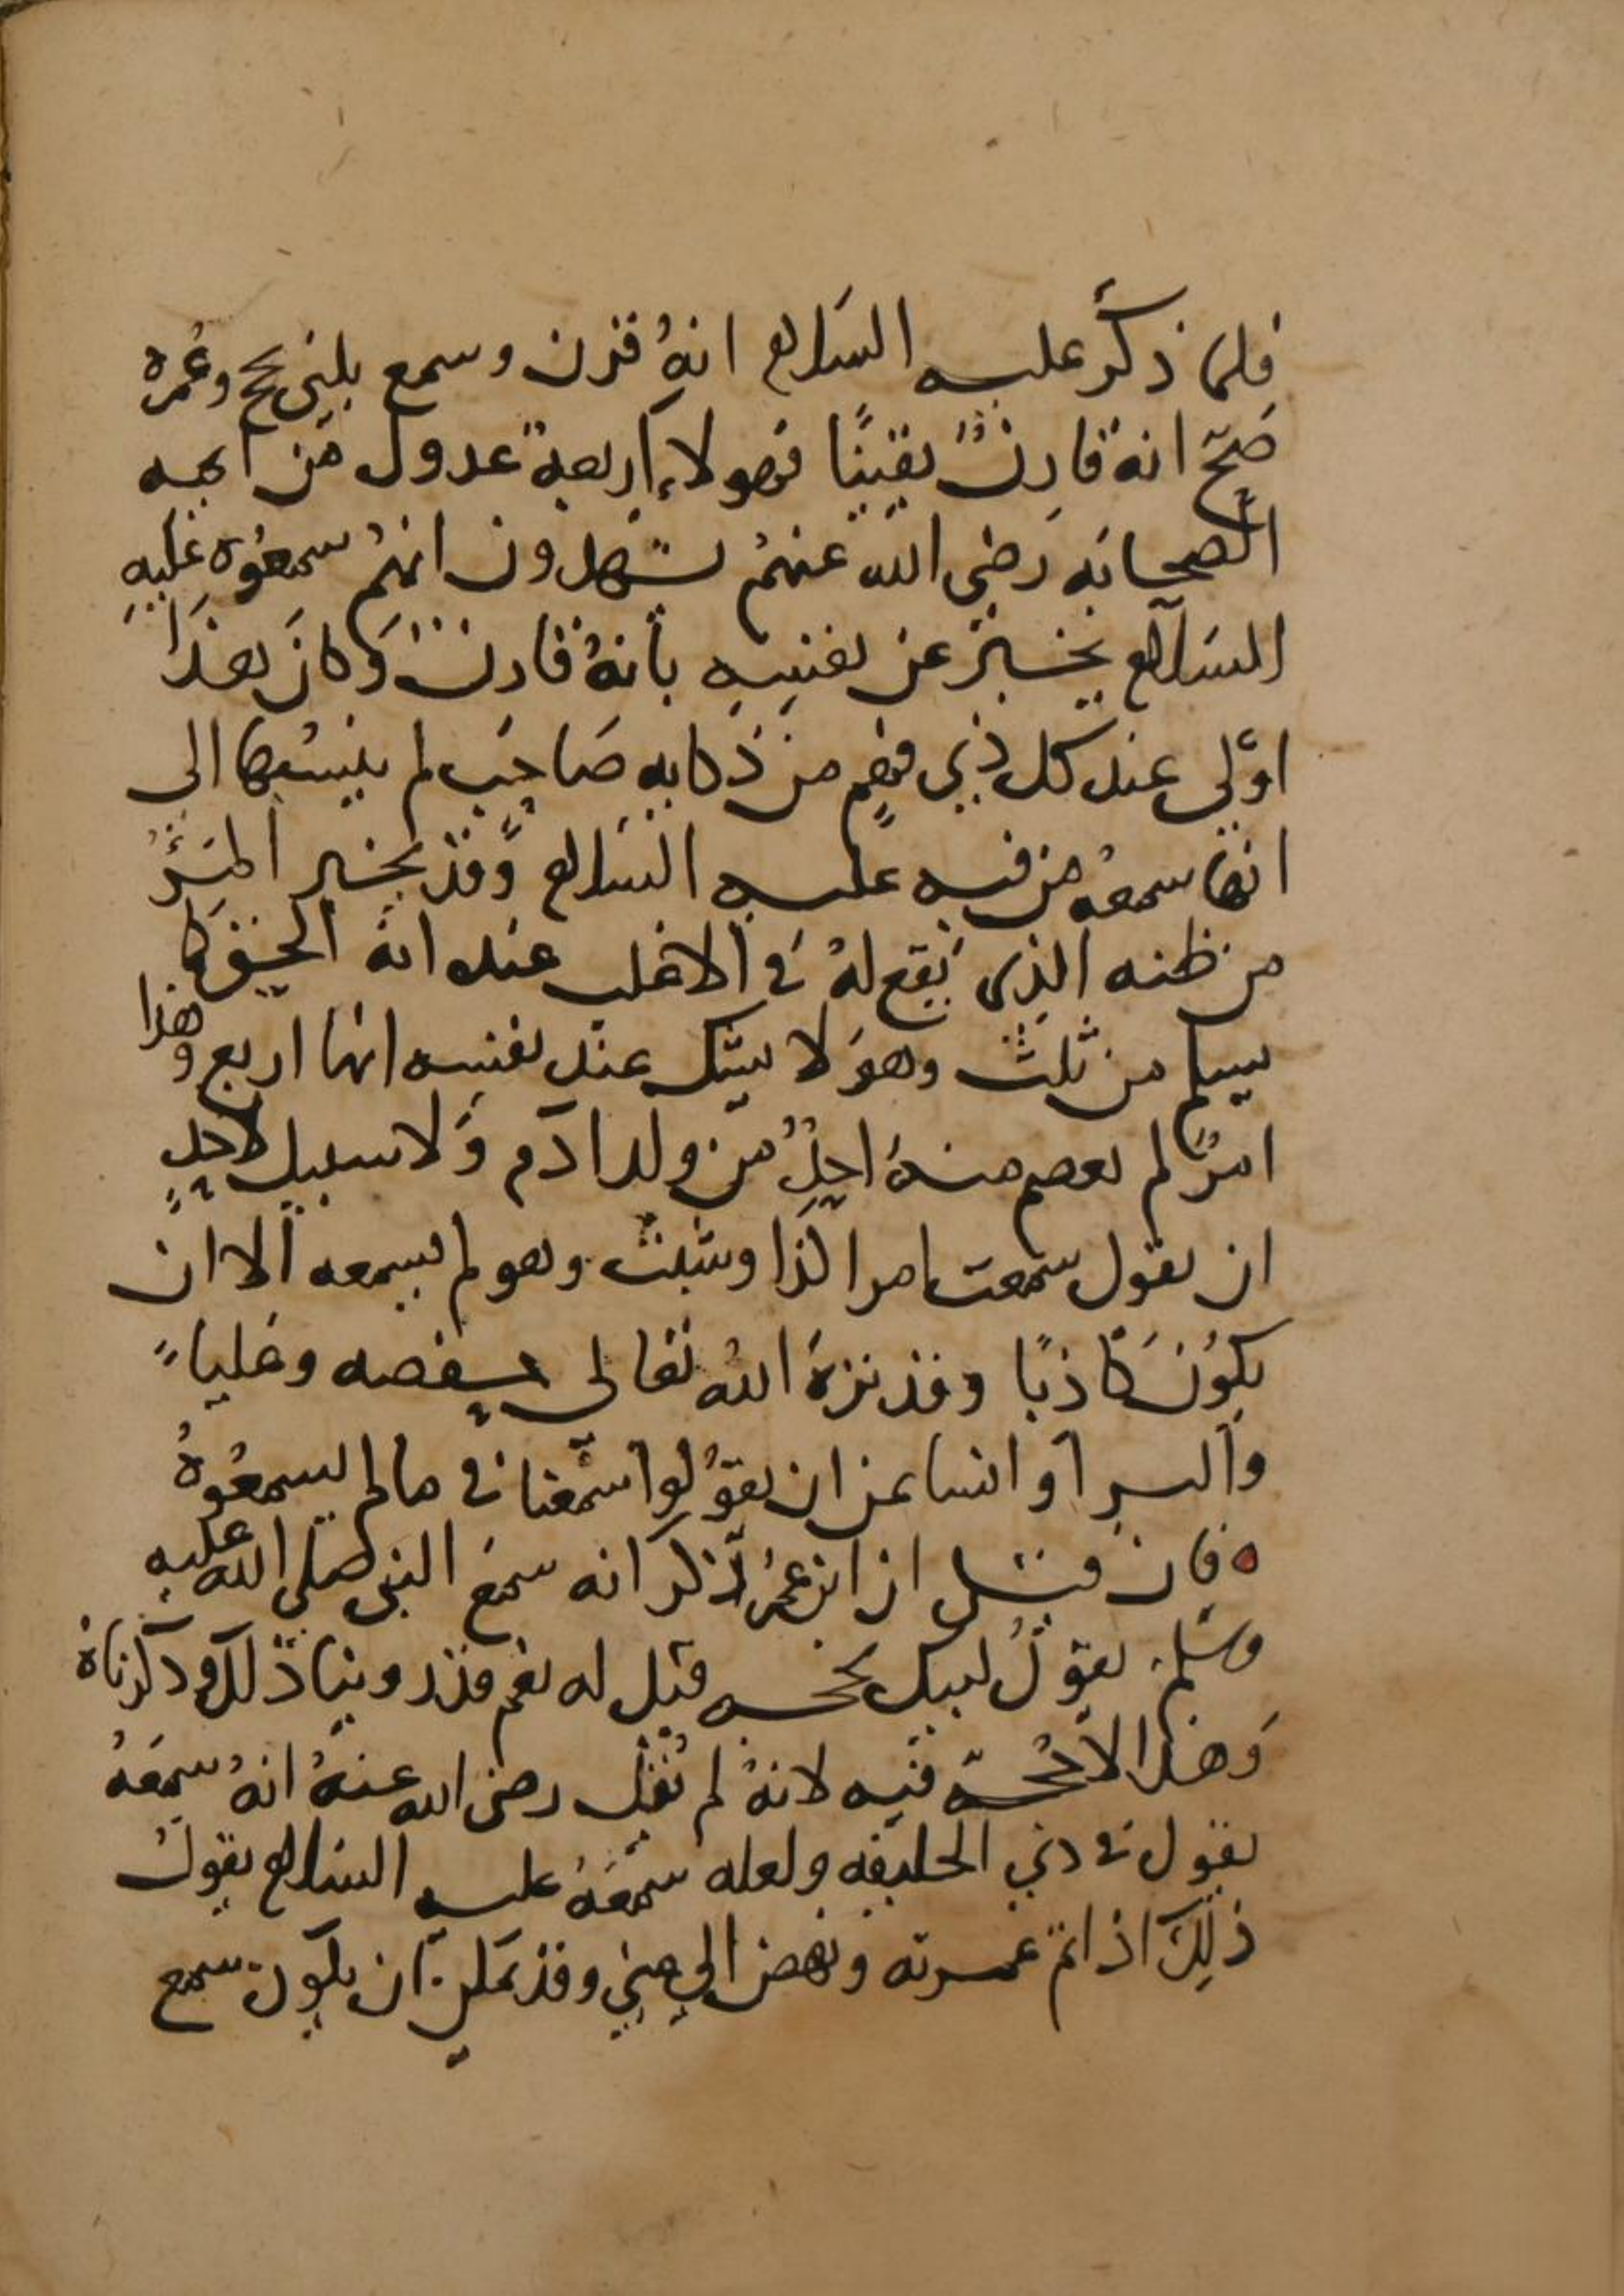 فلما ذكر عليه السلام انه قرن وسمع يلبى بحج وعمره
صح انه قارن يقينا فهولاء اربعة عدول من ايمه
الصحابه رضى الله عنهم يشهدون انهم سمعوه عليه
السلام يخبر عن نفسه بأنه قارن وكان هذا
اولى عند كل ذي فهم من ذكايه صاحب لم ينسبها الى
انها سمعه من فيه عليه السلام وقد يخبر المر
من ظنه الذى يقع له فى الاغلب عنده انه الحق كما
سلم من ثلث وهو لا يشك عند نفسه انها اربع وهذا
امر لم يعصم منه احد من ولد ادم ولا سبيل لاحد
ان يقول سمعت امر كذا وشبث وهو لم يسمعه الا ان
يكون كاذبا وقد نزه الله تعالى حفصه وعليا
والبرا وانسا عن ان يقولوا سمعنا فى ما لم يسمعوه
فان قيل ان ابن عمر ذكر انه سمع النبى صلى الله عليه
وسلم يقول لبيك بحجه قيل له نعم قد روينا ذلك وذكرناه
وهذا لا حجه فيه لانه لم يقل رضى الله عنه انه سمعه
يقول فى ذي الحليفه ولعله سمعه عليه السلام يقول
ذلك اذ اتم عمرته ونهض الى منى وقد يمكن ان يكون سمع